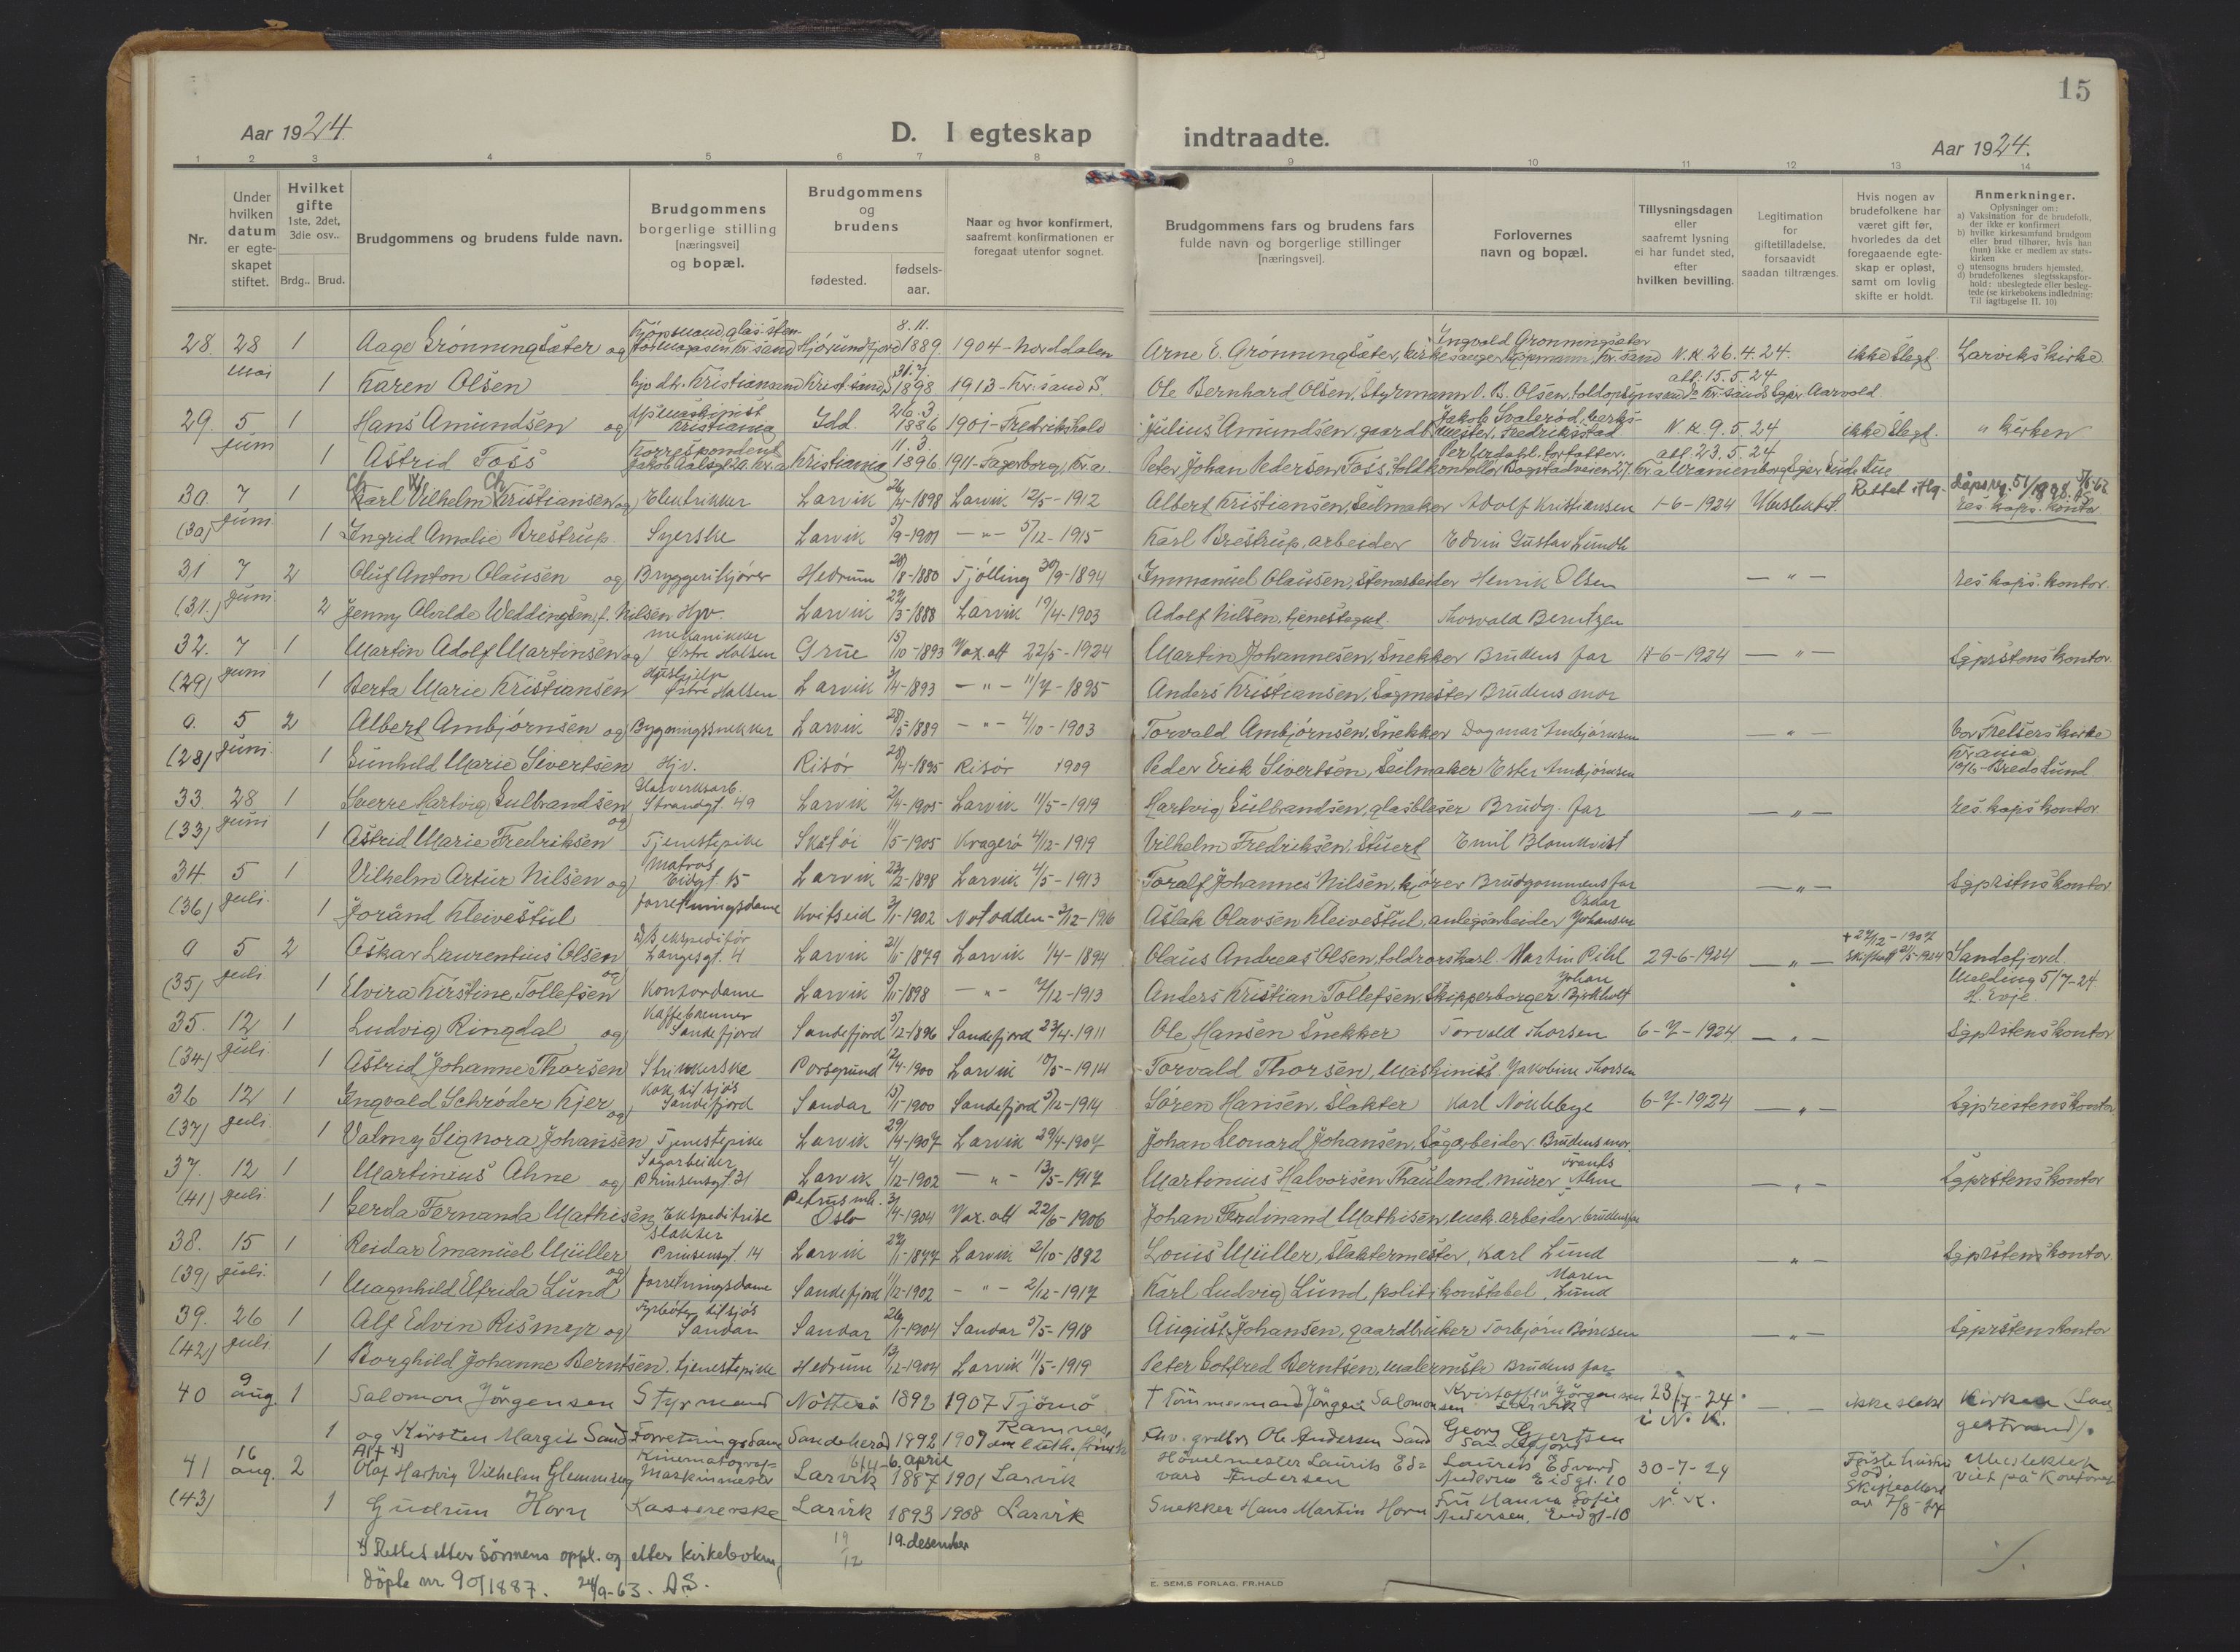 15
Aar 1924.
D. I egteskap indtraadte.
Aar 1924.
1 2 3 4 5 6 7 8 9 10 11 12 13 14
Nr.
Under hvilken datum er egteskapet stiftet.
Hvilket gifte 1ste, 2det, 3die osv..
Brdg.. Brud.
Brudgommens og brudens fulde navn.
Brudgommens borgerlige stilling [næringsvei] og bopæl.
Brudgommens og brudens
fødested.
fødsels-aar.
Naar og hvor konfirmert, saafremt konfirmationen er foregaat utenfor sognet.
Brudgommens fars og brudens fars fulde navn og borgerlige stillinger [næringsvei].
Forlovernes navn og bopæl.
Tillysningsdagen eller saafremt lysning ei har fundet sted, efter hvilken bevilling.
Legitimation for giftetilladelse, forsaavidt saadan tiltrænges.
Hvis nogen av brudefolkene har været gift før, hvorledes da det foregaaende egteskap er opløst, samt om lovlig skifte er holdt.
Anmerkninger.
Oplysninger om:
a) Vaksination for de brudefolk, der ikke er konfirmert
b) hvilke kirkesamfund brudgom eller brud tilhører, hvis han (hun) ikke er medlem av statskirken
c) utensogns bruders hjemsted.
d) brudefolkenes slegtsskapsforhold: ubeslegtede eller beslegtede (se kirkebokens indledning: Til iagttagelse II. 10)
28. 28 mai 1 Aage Grønningsæter og Hjørundfjord 8.11. 1889. 1904 - Norddalen Arne E. Grønningsæter, kirkesanger Ingvald Grønningsæter Kr.sand N.K. 26.4.24. ikke slegt. Larviks kirke
1 Karen Olsen Kristiansand Krist.sand S 31.7. 1898 1913 - Kr.sand S. Ole Bernhard Olsen, Styrmann O. B. Olsen, Kr.sand att. 15.5.24 Sgpr. Aarvold
29. 5 juni 1 Hans Amundsen og Kristiania Idd. 26.3 1886 1901 - Fredrikshald Julius Amundsen, gaardbr. Jakob Svalerød, Fredriksstad N.K. 9.5.24 ikke slegt. " kirken
1 Astrid Foss Korrespondent Jakob Aalsgt. 20. Kr.a Kristiania 11.3. 1896 1911 - Fagerborg, Kr.a. Peter Johan Pedersen Foss, toldkontrollør Bogstadveien 27 Kr.a att. 23.5.24 Uranienborg
30. 7 juni 1 Karl Vilhelm Kristiansen og Elektrikker Larvik 26/4-1898 Larvik 12/5-1912 Albert Kristiansen, Seilmaker Adolf Kristiansen 1-6-1924 Ubeslektet. res. kaps. kontor
(30) 1 Ingrid Amalie Brestrup Syerske Larvik 5/9-1901 - " - 5/12-1915 Karl Brestrup, arbeider Edvin Gustav Lundh
31 7 juni 2 Oluf Anton Olausen og Bryggerikjører Hedrum 28/8-1880 Tjølling 30/9-1894 Immanuel Olausen, Stenarbeider Henrik Olsen - " - res. kaps. kontor
(31.) 2 Jenny Alvilde Weddingsen, f. Nilsen Hjv. Larvik 29/3-1888 Larvik 19/4-1903 Adolf Nilsen, tjenestegut. Thorvald Berntzen
32. 7 juni 1 Martin Adolf Martinsen og mekanikker Østre Halsen Grue 15/10-1893 Vox. att 22/5-1924 Martin Johannesen, Snekker Brudens far - " - Sgprstens kontor.
(29) 1 Berta Marie Kristiansen Hushjelp Østre Halsen Larvik 3/4-1893 - " - 11/7-1895 Anders Kristiansen, Sagmester Brudens mor
a. 5 juni 2 Albert Ambjørnsen og Bygningssnekker Larvik 28/5-1889 - " - 4/10-1903 Torvald Ambjørnsen, Snekker Dagmar Ambjørnsen - " - Vor Frelsers kirke
(28) 1 Gunhild Marie Sivertsen Hjv. Risør 28/4-1895 Risør 1909 Peder Erik Sivertsen, Seilmaker Ester Ambjørnsen Kr.ania Bredo Lund
33. 28 juni 1 Sverre Hartvig Gulbrandsen og Glasverksarb. Strandgt. 49 Larvik 2/4-1905 Larvik 11/5-1919 Hartvig Gulbrandsen, glasbleser Brudg. far - " - res. kaps kontor
(33) 1 Astrid Marie Fredriksen Tjenestepike Skåtøi 11/5-1905 Kragerø 4/12-1919 Vilhelm Fredriksen, Stuert Emil Blomkvist
34. 5 juli 1 Vilhelm Artur Nilsen og Matros Eidgt. 15 Larvik 23/2-1898 Larvik 4/5-1913 Toralf Johannes Nilsen, kjører Brudgommens far - " - Sgprstens kontor
(36) 1 Jorand Kleivestul forretningsdame Kvitseid 3/1-1902 Notodden - 3/12-1916 Aslak Olavsen Kleivestul, anlegsarbeider Oskar Johansen
a 5 juli 2 Oskar Laurentius Olsen og D/S ekspeditør Langesgt. 4 Larvik 21/5-1879 Larvik 1/4-1894 Olaus Andreas Olsen, toldrorskarl Martin Pihl 29-6-1924 - " - + 27/12-1907 Skifteatt 21/5-1924 Sandefjord.
(35) 1 Elvira Kirstine Tollefsen Kontordame Larvik 5/11-1898 - " - 7/12-1913 Anders Kristian Tollefsen, Skipperborger Johan Melding 5/7-24 H. Evje
35. 12 juli 1 Ludvig Ringdal og Kaffebrenner Sandefjord Sandefjord 5/12-1896 Sandefjord 23/4-1911 Ole Hansen Snekker Torvald Thorsen 6-7-1924 - " - Sgprstens kontor
(34) 1 Astrid Johanne Thorsen Strikkerske Porsgrund 12/4-1900 Larvik 10/5-1914 Torvald Thorsen, Maskinist. Jakobine Thorsen
36 12 juli 1 Ingvald Schrøder Kjer og Kok til sjøs Sandefjord Sandar 15/1-1900 Sandefjord 5/12-1914 Søren Hansen, Slakter Karl Nøklebye 6-7-1924 - " - Sgprestens kontor
(37) 1 Valmy Signora Johansen Tjenestepike Larvik 29/4-1907 Larvik 29/4-1907 Johan Leonard Johansen, Sagarbeider Brudens mor.
37. 12 juli 1 Martinius Ahne og Sagarbeider Prinsensgt. 31 Larvik 4/12-1902 - " - 13/5-1917 Martinius Halvorsen Thauland, murer Frants Ahne - " - Sgprstens kontor
(41) 1 Gerda Fernanda Mathisen, Ekspeditrise Petrus mh. Oslo 3/4-1904 Vax. att 22/6-1906 Johan Ferdinand Mathisen, mek. arbeider brudens far
38. 15 juli 1 Reidar Emanuel Müller og Slakter Prinsensgt. 14 Larvik 27/1-1877 Larvik 2/10-1892 Louis Müller, Slaktermester, Karl Lund - " - Sgprstens kontor
(39) 1 Magnhild Elfrida Lund forretningsdame Sandefjord 11/12-1902 - " - 2/12-1917 Karl Ludvig Lund, politikonstabel, Maren Lund
39. 26 juli 1 Alf Edvin Rismyr og Fyrbøter til sjøs Sandar Sandar 26/1-1904 Sandar 5/5-1918 August Johansen, gaardbruker Torbjørn Bönesen - " - Sgprstens kontor
(42) 1 Borghild Johanne Berntsen. tjenestepike Hedrum 13/12-1904 Larvik 11/5-1919 Peter Gotfred Berntsen, malermstr Brudens far
40 9 aug. 1 Salomon Jörgensen Styrmand Nötterö 1892 1907 Tjömö † Tömmermand Jörgen Salomonsen Kristoffer Jörgensen Larvik 23/7-24 i N. K. ikke slekt Kirken (Langestrand).
1 og Kirsten Margit Sand Forretningsdame Sandeherad 1892 1907 Ramnes, Fhv. grdbr. Ole Andersen Sand Georg Gjertsen Sandefjord
41 16 aug. 2 Olaf Hartvig Vilhelm Glemming Kinematograf-maskinmester Larvik 6. april 1887 1901 Larvik Hövelmester Laurits Edvard Andersen Laurits Edvard Andersen Eidgt. 10 30-7-24 Förste hustru död, Skifteattest av 7/8-24 Ubeslektet
(43) 1 Gudrun Horn Kassererske Larvik 1893 1908 Larvik Snekker Hans Martin Horn Fru Hanna Sofie Andersen, Eidgt-10 N. K.
19/12 19. desember
+) Rettet etter sönnens oppl. og etter kirkeboken,
döpte nr 90/1887. 24/9-63. A.S.
E. SEM,S FORLAG, FR.HALD